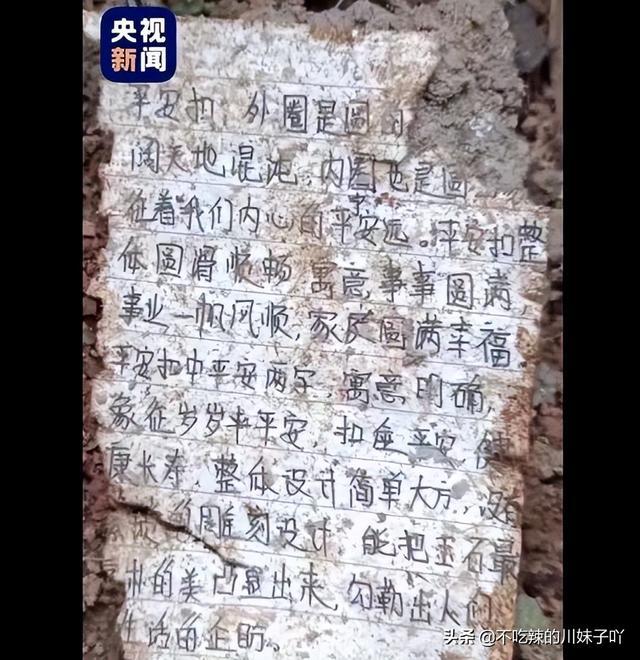 央视
新闻
平安扣,外圈是圆
阔天地混沌,内圈也是圆
征着我们内心的平安远。平安扣整
体圆滑顺畅 寓意,事事圆满,
事业一帆风顺,家庭圆满幸福.
平安扣中平安两字,寓意明确,
象征岁岁平平安,扣住平安 健
康长寿,整体设计简单大方,没有
雕刻设计 能把玉石最
的美凸显出来,勾勒出人们
生活的企盼。
头条 @不吃辣的川妹子吖